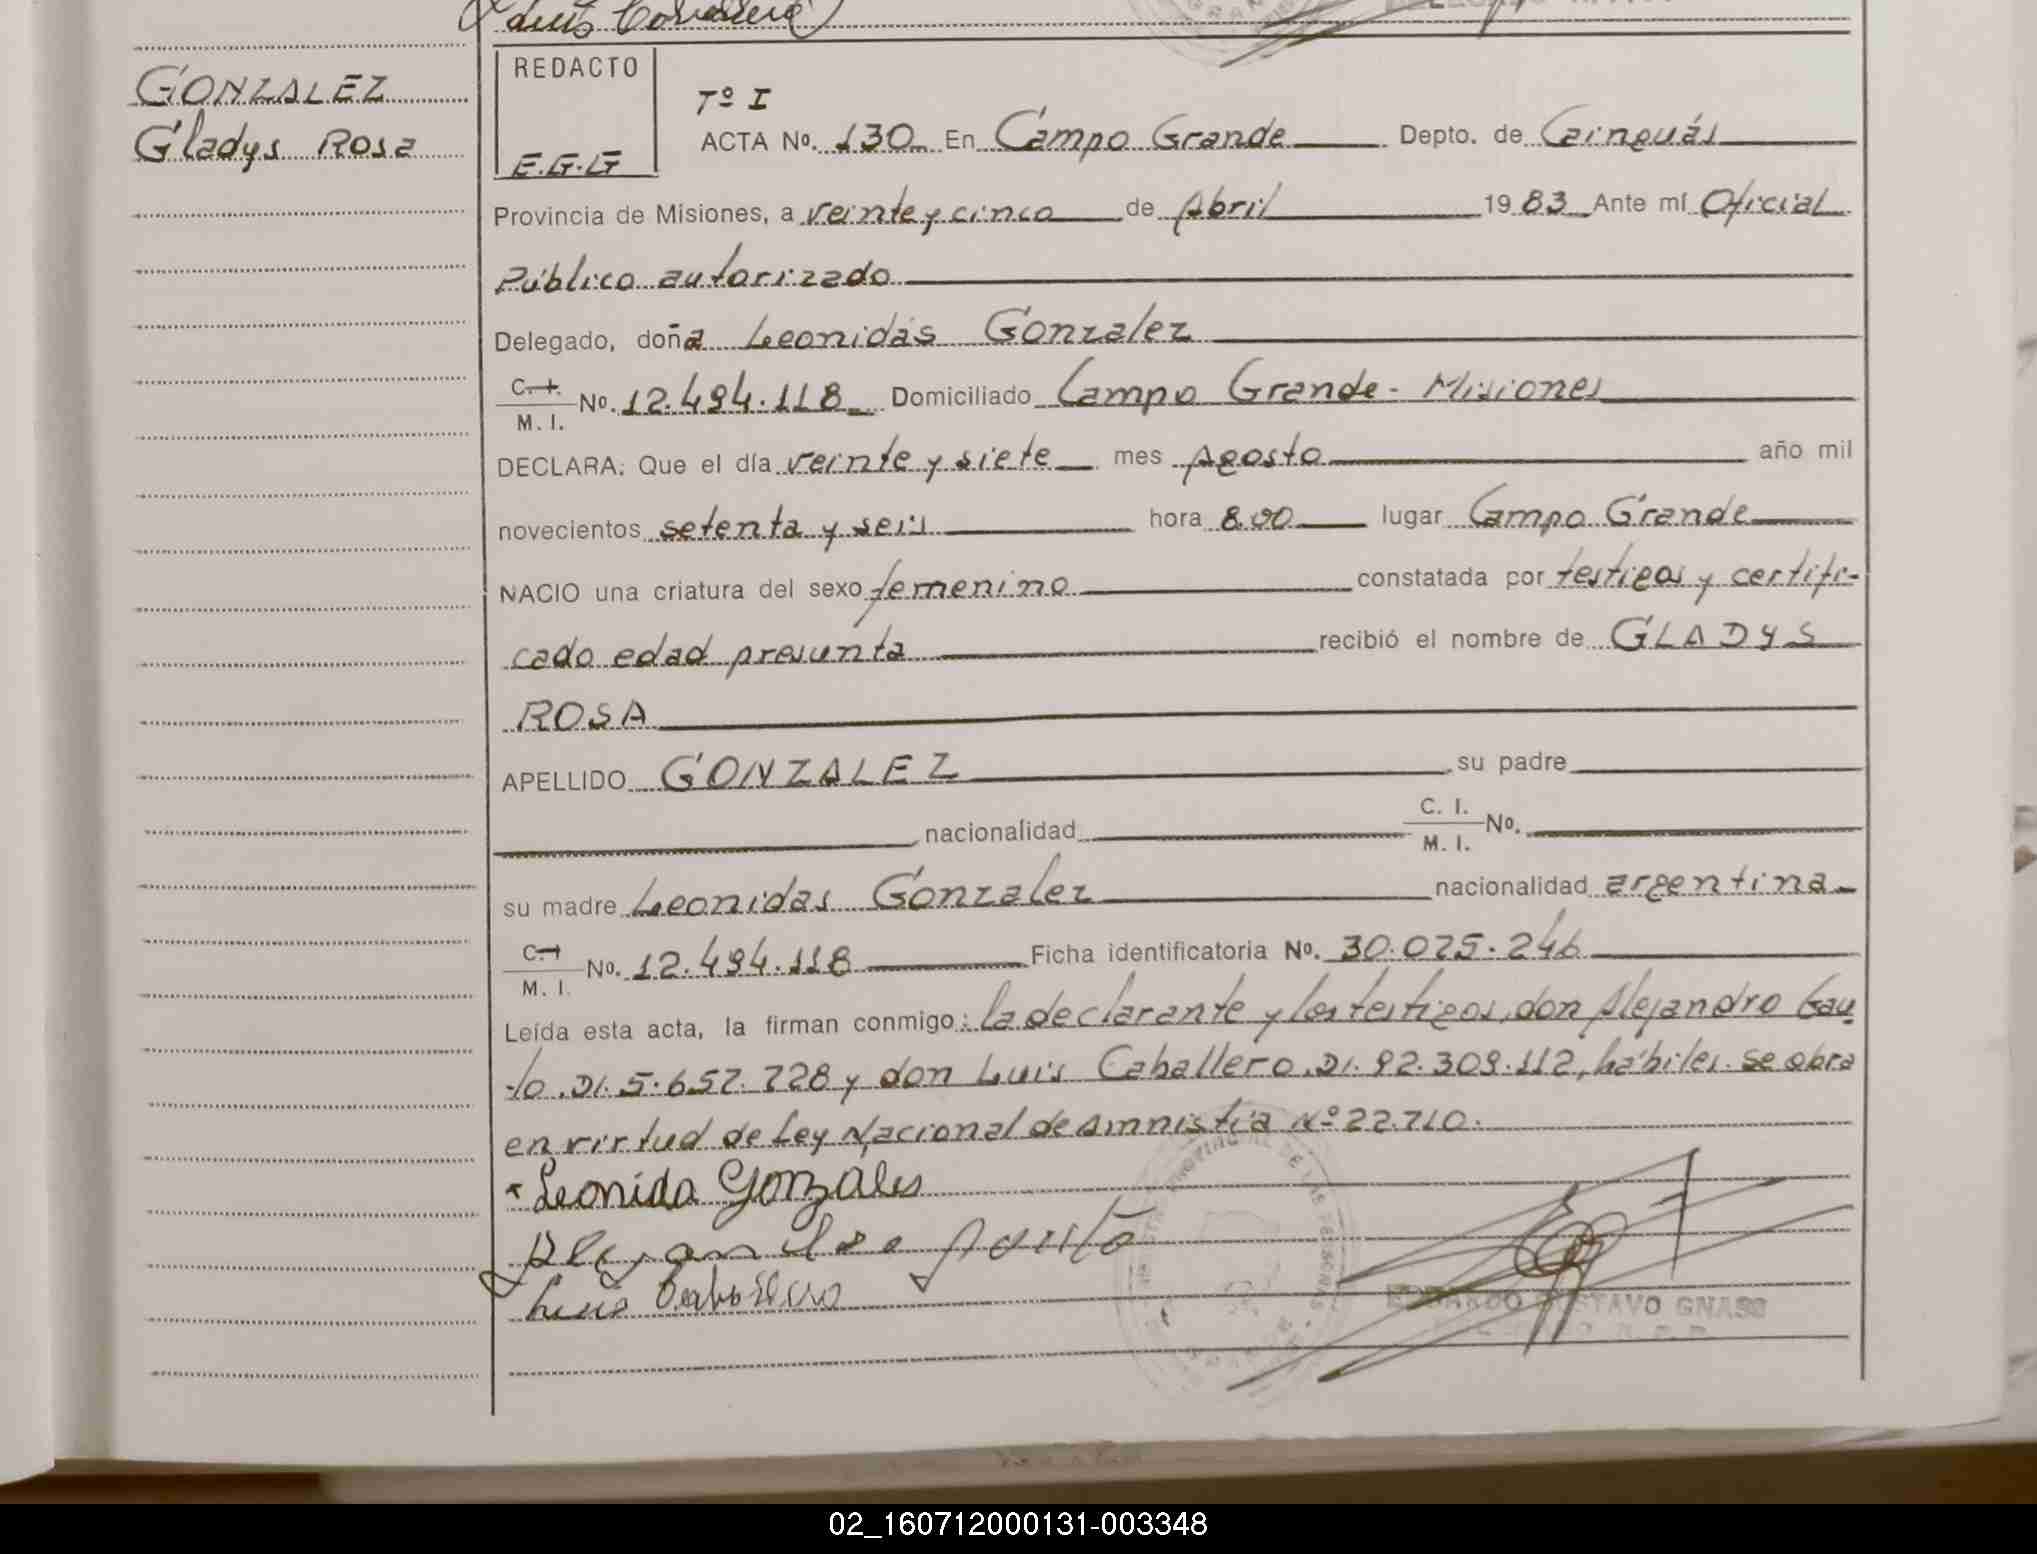 Luis Caballero
GONZALEZ
Gladys Rosa
REDACTO
E.G.G
Tº I
ACTA No. 130 En Campo Grande Depto. de Cainguás
Provincia de Misiones, a veinte y cinco de Abril 1983 Ante mí Oficial
Público autorizado
Delegado, doña Leonidas Gonzalez
C. I. / M. I. No. 12.494.118 Domiciliado Campo Grande - Misiones
DECLARA: Que el día veinte y siete mes Agosto año mil
novecientos setenta y seis hora 8.00 lugar Campo Grande
NACIO una criatura del sexo femenino constatada por testigos y certifi-
cado edad presunta recibió el nombre de GLADYS
ROSA
APELLIDO GONZALEZ su padre
nacionalidad C. I. / M. I. No.
su madre Leonidas Gonzalez nacionalidad argentina
C. I. / M. I. No. 12.494.118 Ficha identificatoria No. 30.025.246
Leída esta acta, la firman conmigo: la declarante y los testigos, don Alejandro Gau
to .DI. 5.657.728 y don Luis Caballero .DI. 92.309.112, hábiles. Se obra
en virtud de Ley Nacional de Amnistía Nº 22.710.
Leonida Gonzales
Luis Caballero
EDGARDO GUSTAVO GNASS
02_160712000131-003348